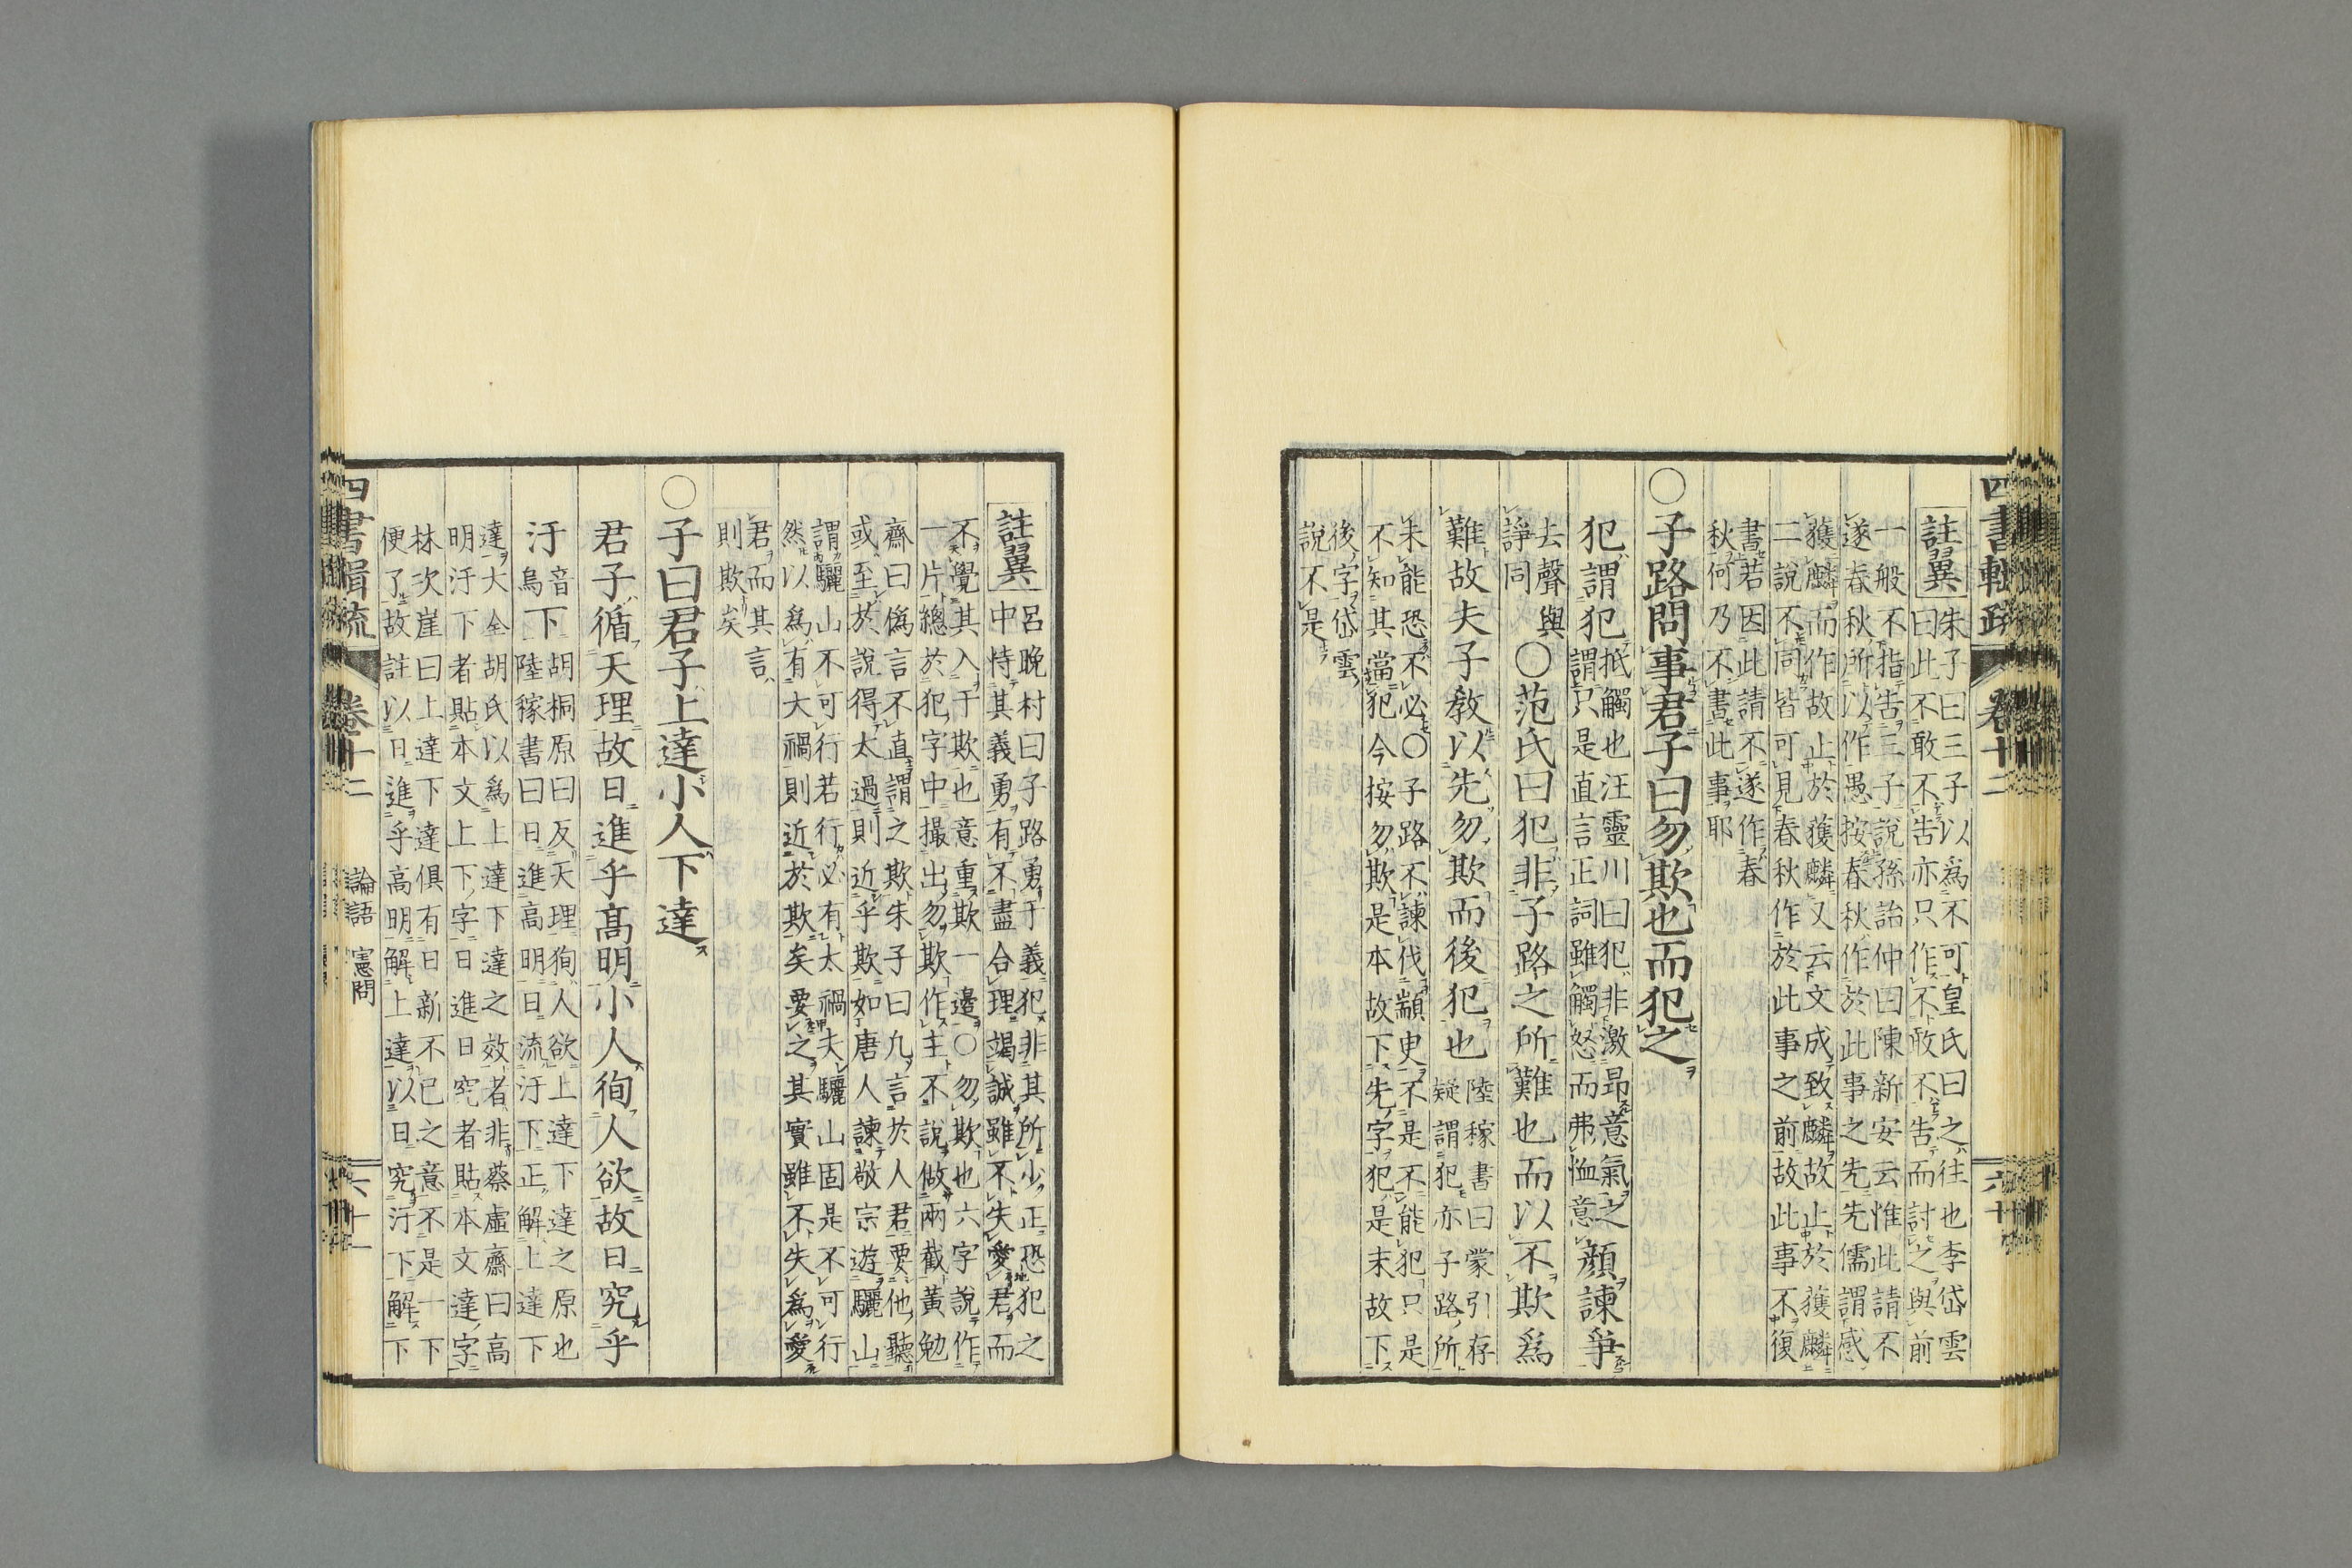 四書輯疏 卷十二 六十
註翼
朱子曰三子以爲不可皇氏曰之往也李岱雲
曰此不敢不告亦只作不敢不告而討之與前
一般不指告三子說孫詒仲曰陳新安云惟此請不
遂春秋所以作愚按春秋作於此事之先先儒謂感
獲麟而作故止於獲麟又云文成致麟故止於獲麟
二說不同皆可見春秋作於此事之前故此事不復
書若因此請不遂作春
秋何乃不書此事耶
〇子路問事君子曰勿欺也而犯之
犯謂犯
抵觸也汪靈川曰犯非激昂意氣之
謂只是直言正詞雖觸怒而弗恤意
顔諫爭
去聲與
諍同
〇范氏曰犯非子路之所難也而以不欺爲
難故夫子敎以先勿欺而後犯也
陸稼書曰蒙引存
疑謂犯亦子路所
未能恐不必〇子路不諫伐顓臾不是不能犯只是
不知其當犯今按勿欺是本故下先字犯是末故下
後字岱雲
說不是
註翼
呂晚村曰子路勇于義犯非其所少正恐犯之
中恃其義勇有不盡合理竭誠雖不失愛君而
不覺其入于欺也意重欺一邊〇勿欺也六字說作
一片總於犯字中撮出勿欺作主不說做兩截黃勉
齋曰僞言不直謂之欺朱子曰凡言於人君要他聽
或至於說得太過則近乎欺如唐人諫敬宗遊驪山
謂驪山不可行若行必有太禍夫驪山固是不可行
然以爲有大禍則近於欺矣要之其實雖不失爲愛
君而其言
則欺矣
〇子曰君子上達小人下達
君子循天理故日進乎高明小人徇人欲故日究乎
汙
音
烏
下
胡桐原曰反天理徇人欲上達下達之原也
陸稼書曰日進高明日流汙下正解上達下
達大全胡氏以爲上達下達之效者非蔡虛齋曰高
明汙下者貼本文上下字日進日究者貼本文達字
林次崖曰上達下達俱有日新不已之意不是一下
便了故註以日進乎高明解上達以日究汙下解下
四書輯疏 卷十二 論語 憲問 六十一